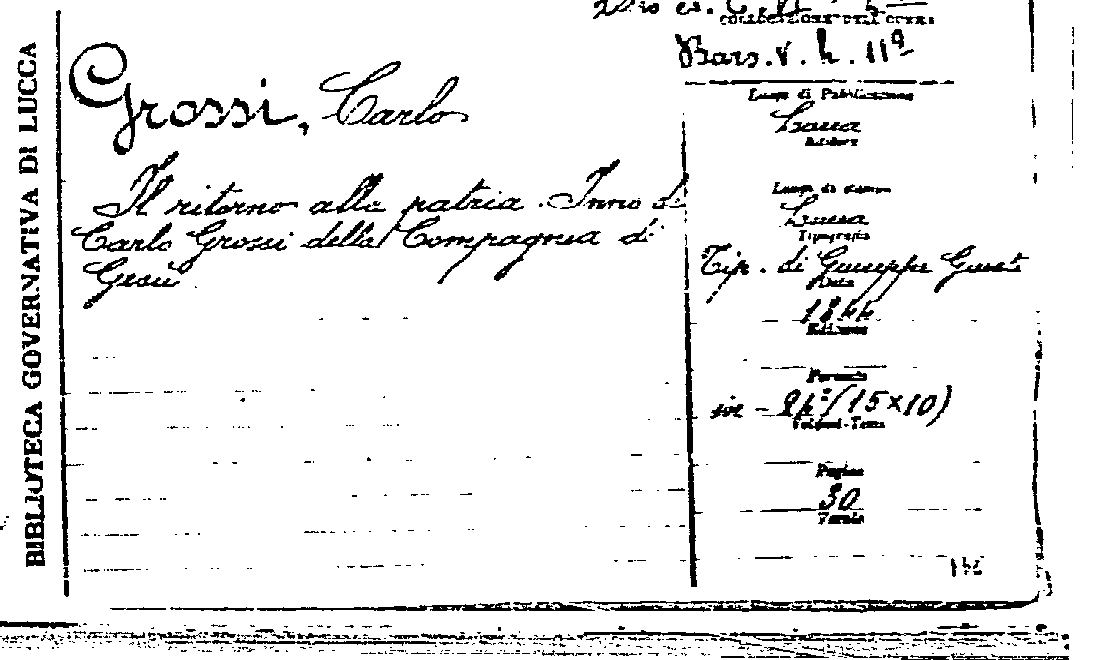 BIBLIOTECA GOVERNATIVA DI LUCCA
COLLOCAZIONE DELL'OPERA
Bars. V. h. 11ª
Grossi, Carlo
Il ritorno alla patria. Inno di
Carlo Grossi della Compagnia di
Gesù
Luogo di Pubblicazione
Lucca
Editore
Luogo di stampa
Lucca
Tipografia
Tip. di Giuseppe Giusti
Data
1844
Edizione
Formato
(15×10)
Volumi-Tomi
Pagine
30
Tavole